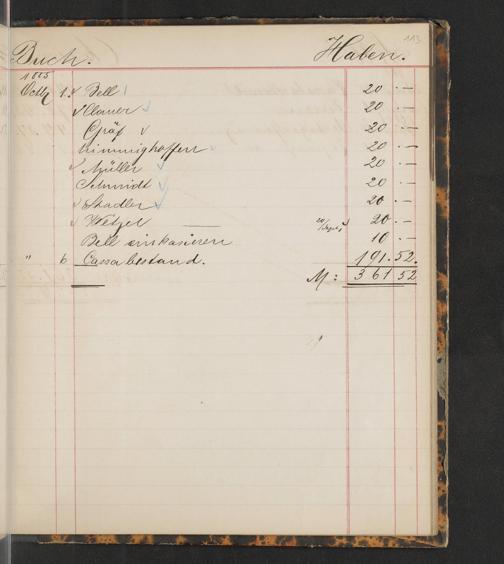 Buch. Haben. 113
Octb 1. Bell 20 . —
Clauer 20 . —
Gräf 20 . —
Himmighoffen 20 . —
Müller 20 . —
Schmidt 20 . —
Stadler 20 . —
Wetzel 20 . —
Bell einkasieren 10 . —
" 6 Cassabestand. 191.52.
M: 361.52